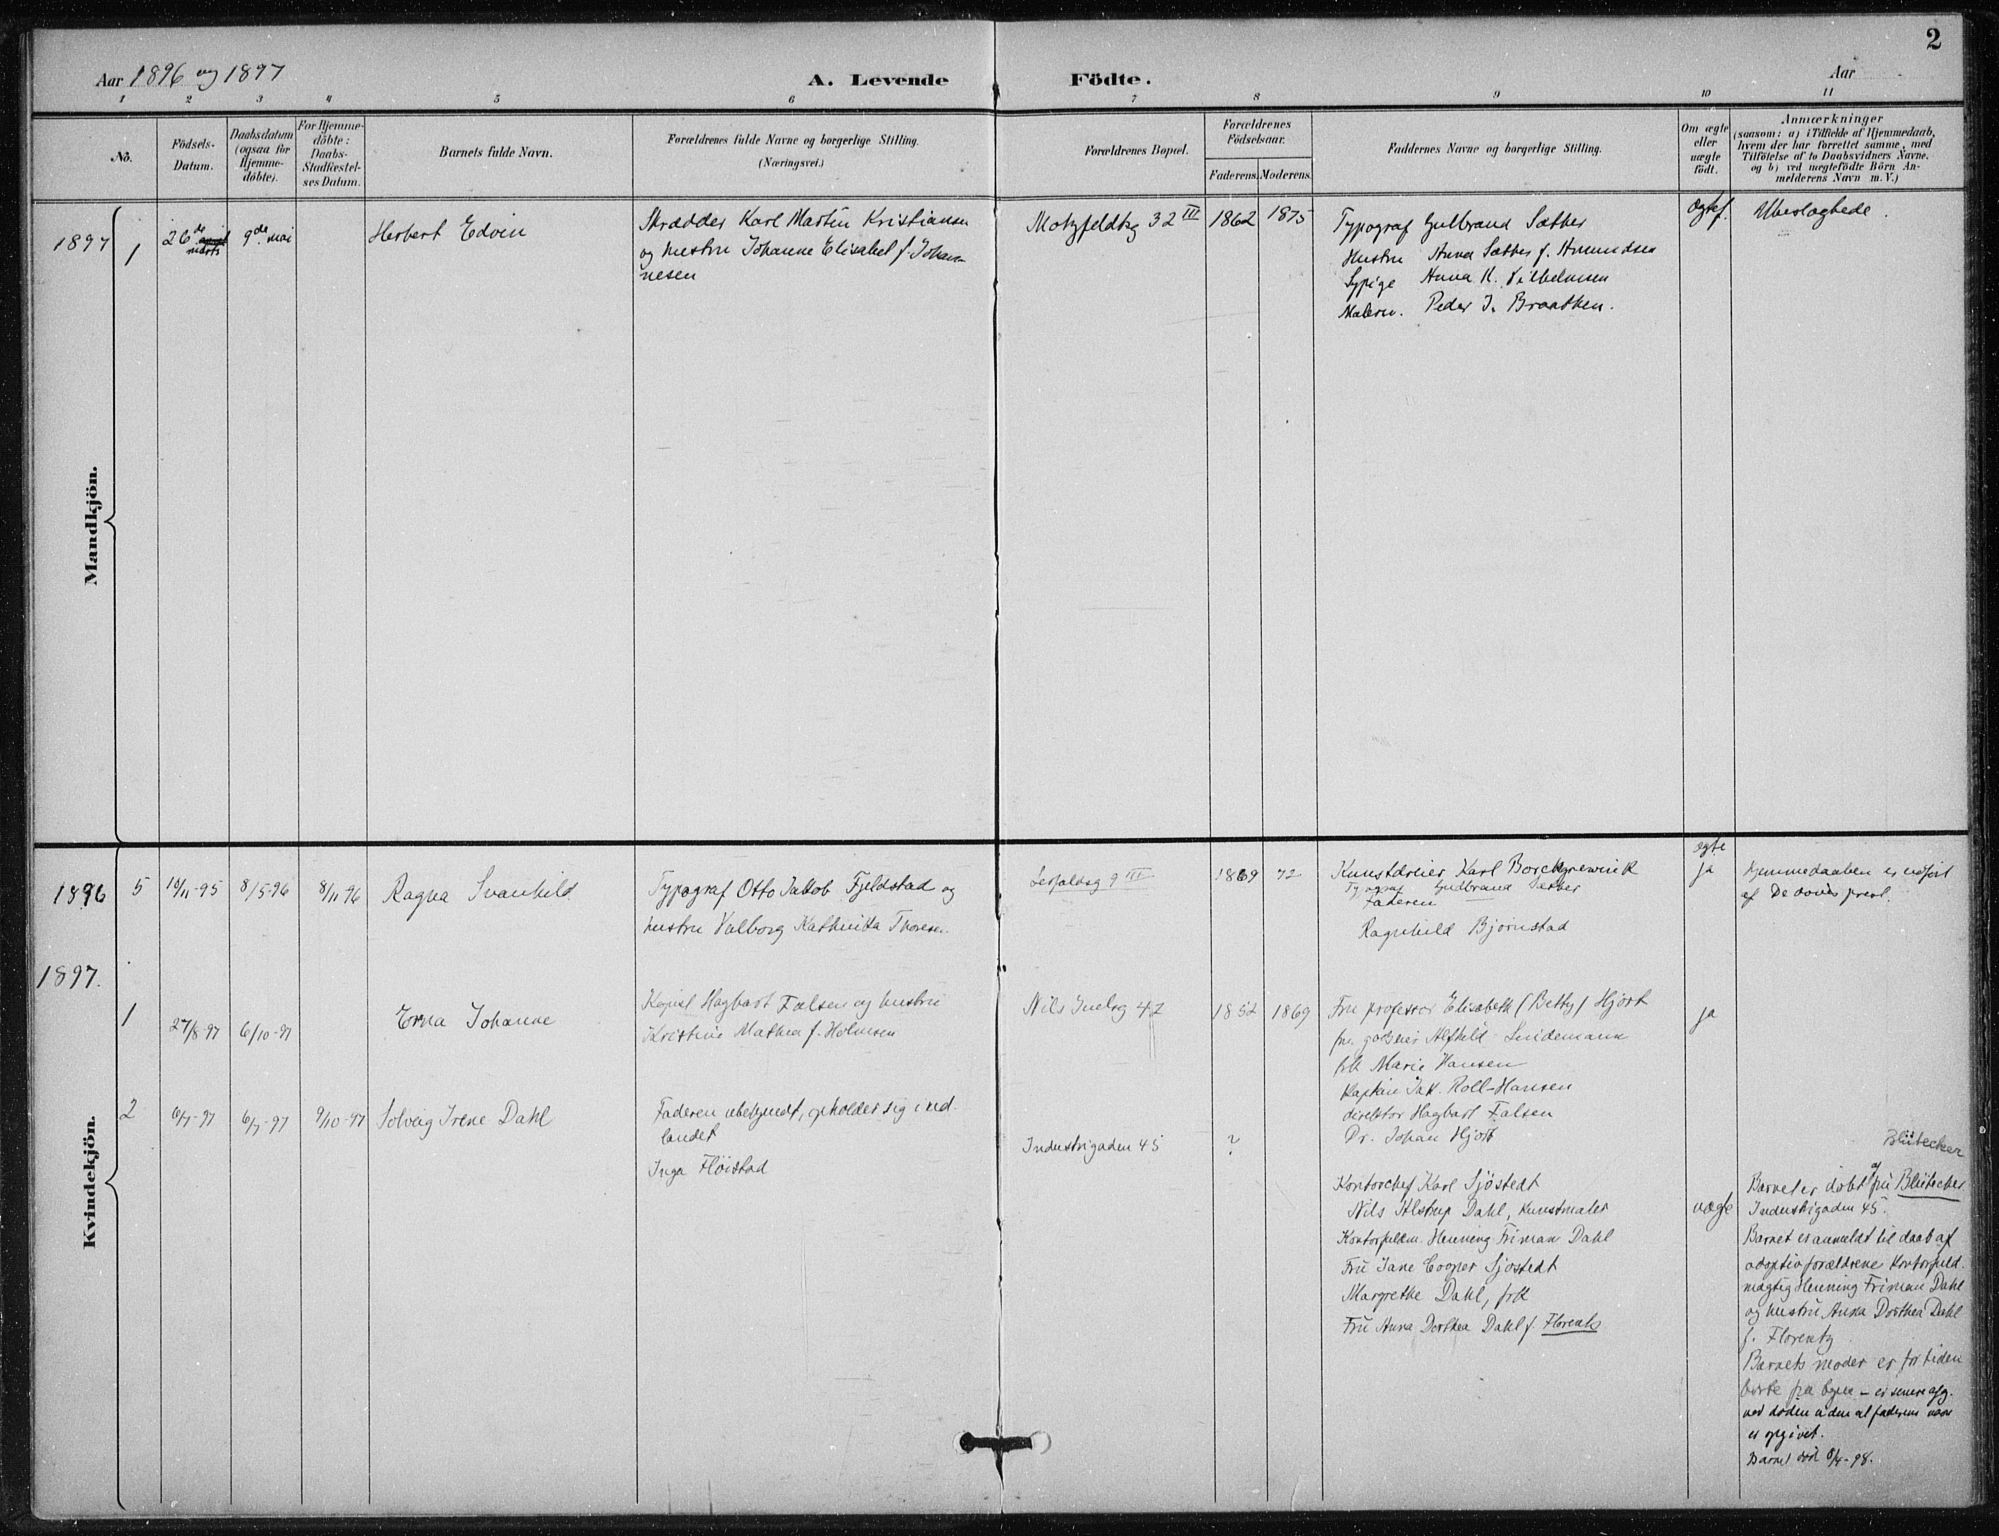 2
Aar 1896 og 1897
A. Levende Födte.
Aar
1 2 3 4 5 6 7 8 9 10 11
No.
Födsels-
Datum.
Daabsdatum
(ogsaa for
Hjemme-
döbte).
For Hjemme-
döbte:
Daabs-
Stadfæstel-
ses Datum.
Barnets fulde Navn.
Forældrenes fulde Navne og borgerlige Stilling.
(Næringsvei.)
Forældrenes Bopæl.
Forældrenes
Födselsaar.
Faderens. Moderens.
Faddernes Navne og borgerlige Stilling.
Om ægte
eller
uægte
födt.
Anmærkninger
(saasom: a) i Tilfælde af Hjemmedaab,
hvem der har forrettet samme, med
Tilföielse af to Daabsvidners Navne,
og b) ved uægtefödte Börn An-
melderens Navn m. V.)
Mandkjön.
1897 1
26de
marts
9de mai
Herbert Edvin
Skrædder Karl Martin Kristiansen
og hustru Johanne Elisabet f. Johan-
nesen
Motzfeldtsg 32 III
1862 1875
Typograf Gulbrand Sæther
Hustru Anna Sæther f. Amundsen
Sypige Anna K. Vilhelmsen
Malersv. Peder J. Braathen.
ægtef.
Ubeslægtede.
Kvindekjön.
1896 5
10/11-95 8/5-96 8/11 96
Ragna Svanhild
Typograf Otto Jakob Fjeldstad og
hustru Valborg Kathinka Thoresen
9 III
1869 72
Karl Borchgrevink
Typograf Gudbrand Sæther
Faderen
Ragnhild Bjørnstad
ægte
ja
Hjemmedaaben er udført
af De døves prest.
1897.
1
27/8-97 6/10-97
Erna Johanne
Hagbart Falsen og hustru
Kristine Mathea f. Holmsen
Nils Juelsg 42
1852 1869
Fru professor Elisabeth (Betty) Hjort
fru godseier Alfhild Lindemann
frk Marie Hansen
Kaptein Jak. Roll-Hansen
direktør Hagbart Falsen
Dr. Johan Hjort
ja
2
6/7-97 6/7-97 9/10-97
Solveig Irene Dahl
Faderen ubekjendt, opholder sig i ud-
landet
Inga Fløistad
Industrigaden 45
?
Kontorchef Karl Sjöstedt
Nils Alstrup Dahl, Kunstmaler
Kontorfuldm. Henning Friman Dahl
Fru Jane Cooper Sjöstedt
Margrethe Dahl, frk
Fru Anna Dorthea Dahl f. Florentz
uægte
Blütecher
Barnet er døbt af fru Blütecher
Industrigaden 45.
Barnet er anmeldt til daab af
adoptivforældrene Kontorfuld-
mægtig Henning Friman Dahl
og hustru Anna Dorthea Dahl
f. Florentz
Barnets moder er for tiden
borte fra byen – er senere afg.
ved døden uden at faderens navn
er opgivet.
Barnet død 8/4-98.